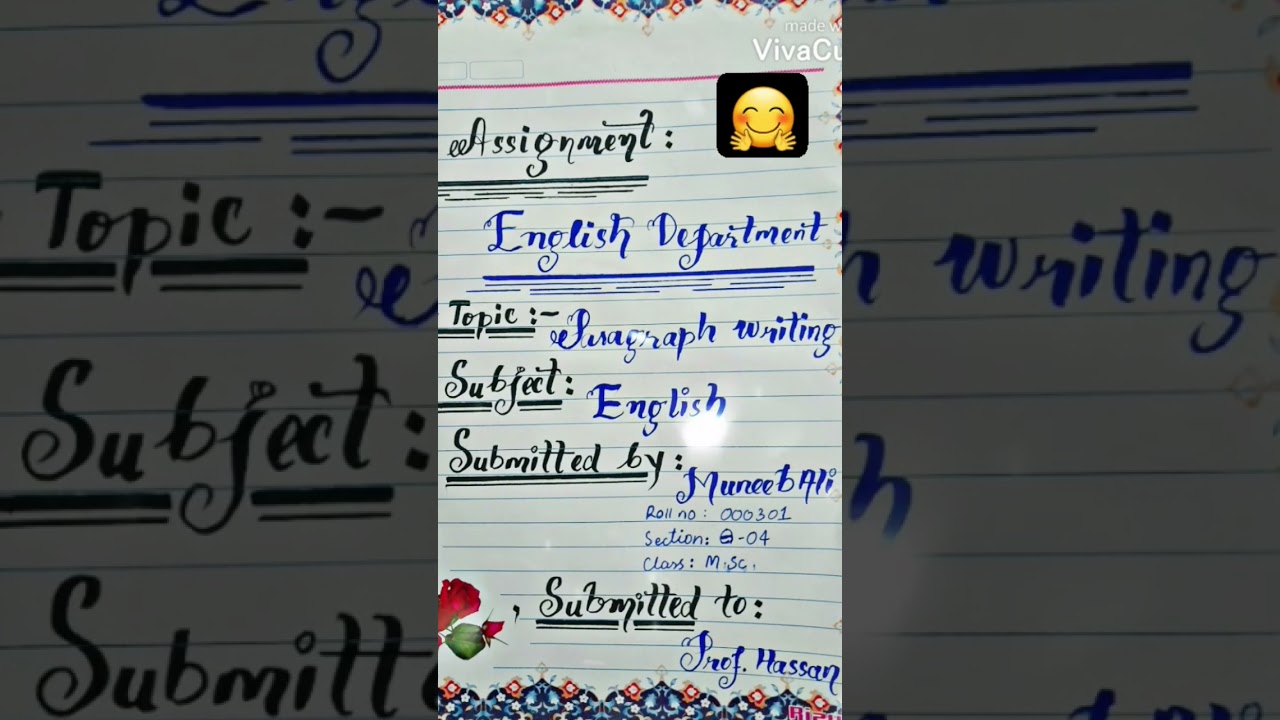 made w
VivaCu
Assignment:
English Department
Topic :- Paragraph writing
Subject: English
Submitted by:
Muneeb Ali
Roll no : 000301
Section: -04
Class: M.Sc.
, Submitted to:
Prof. Hassan